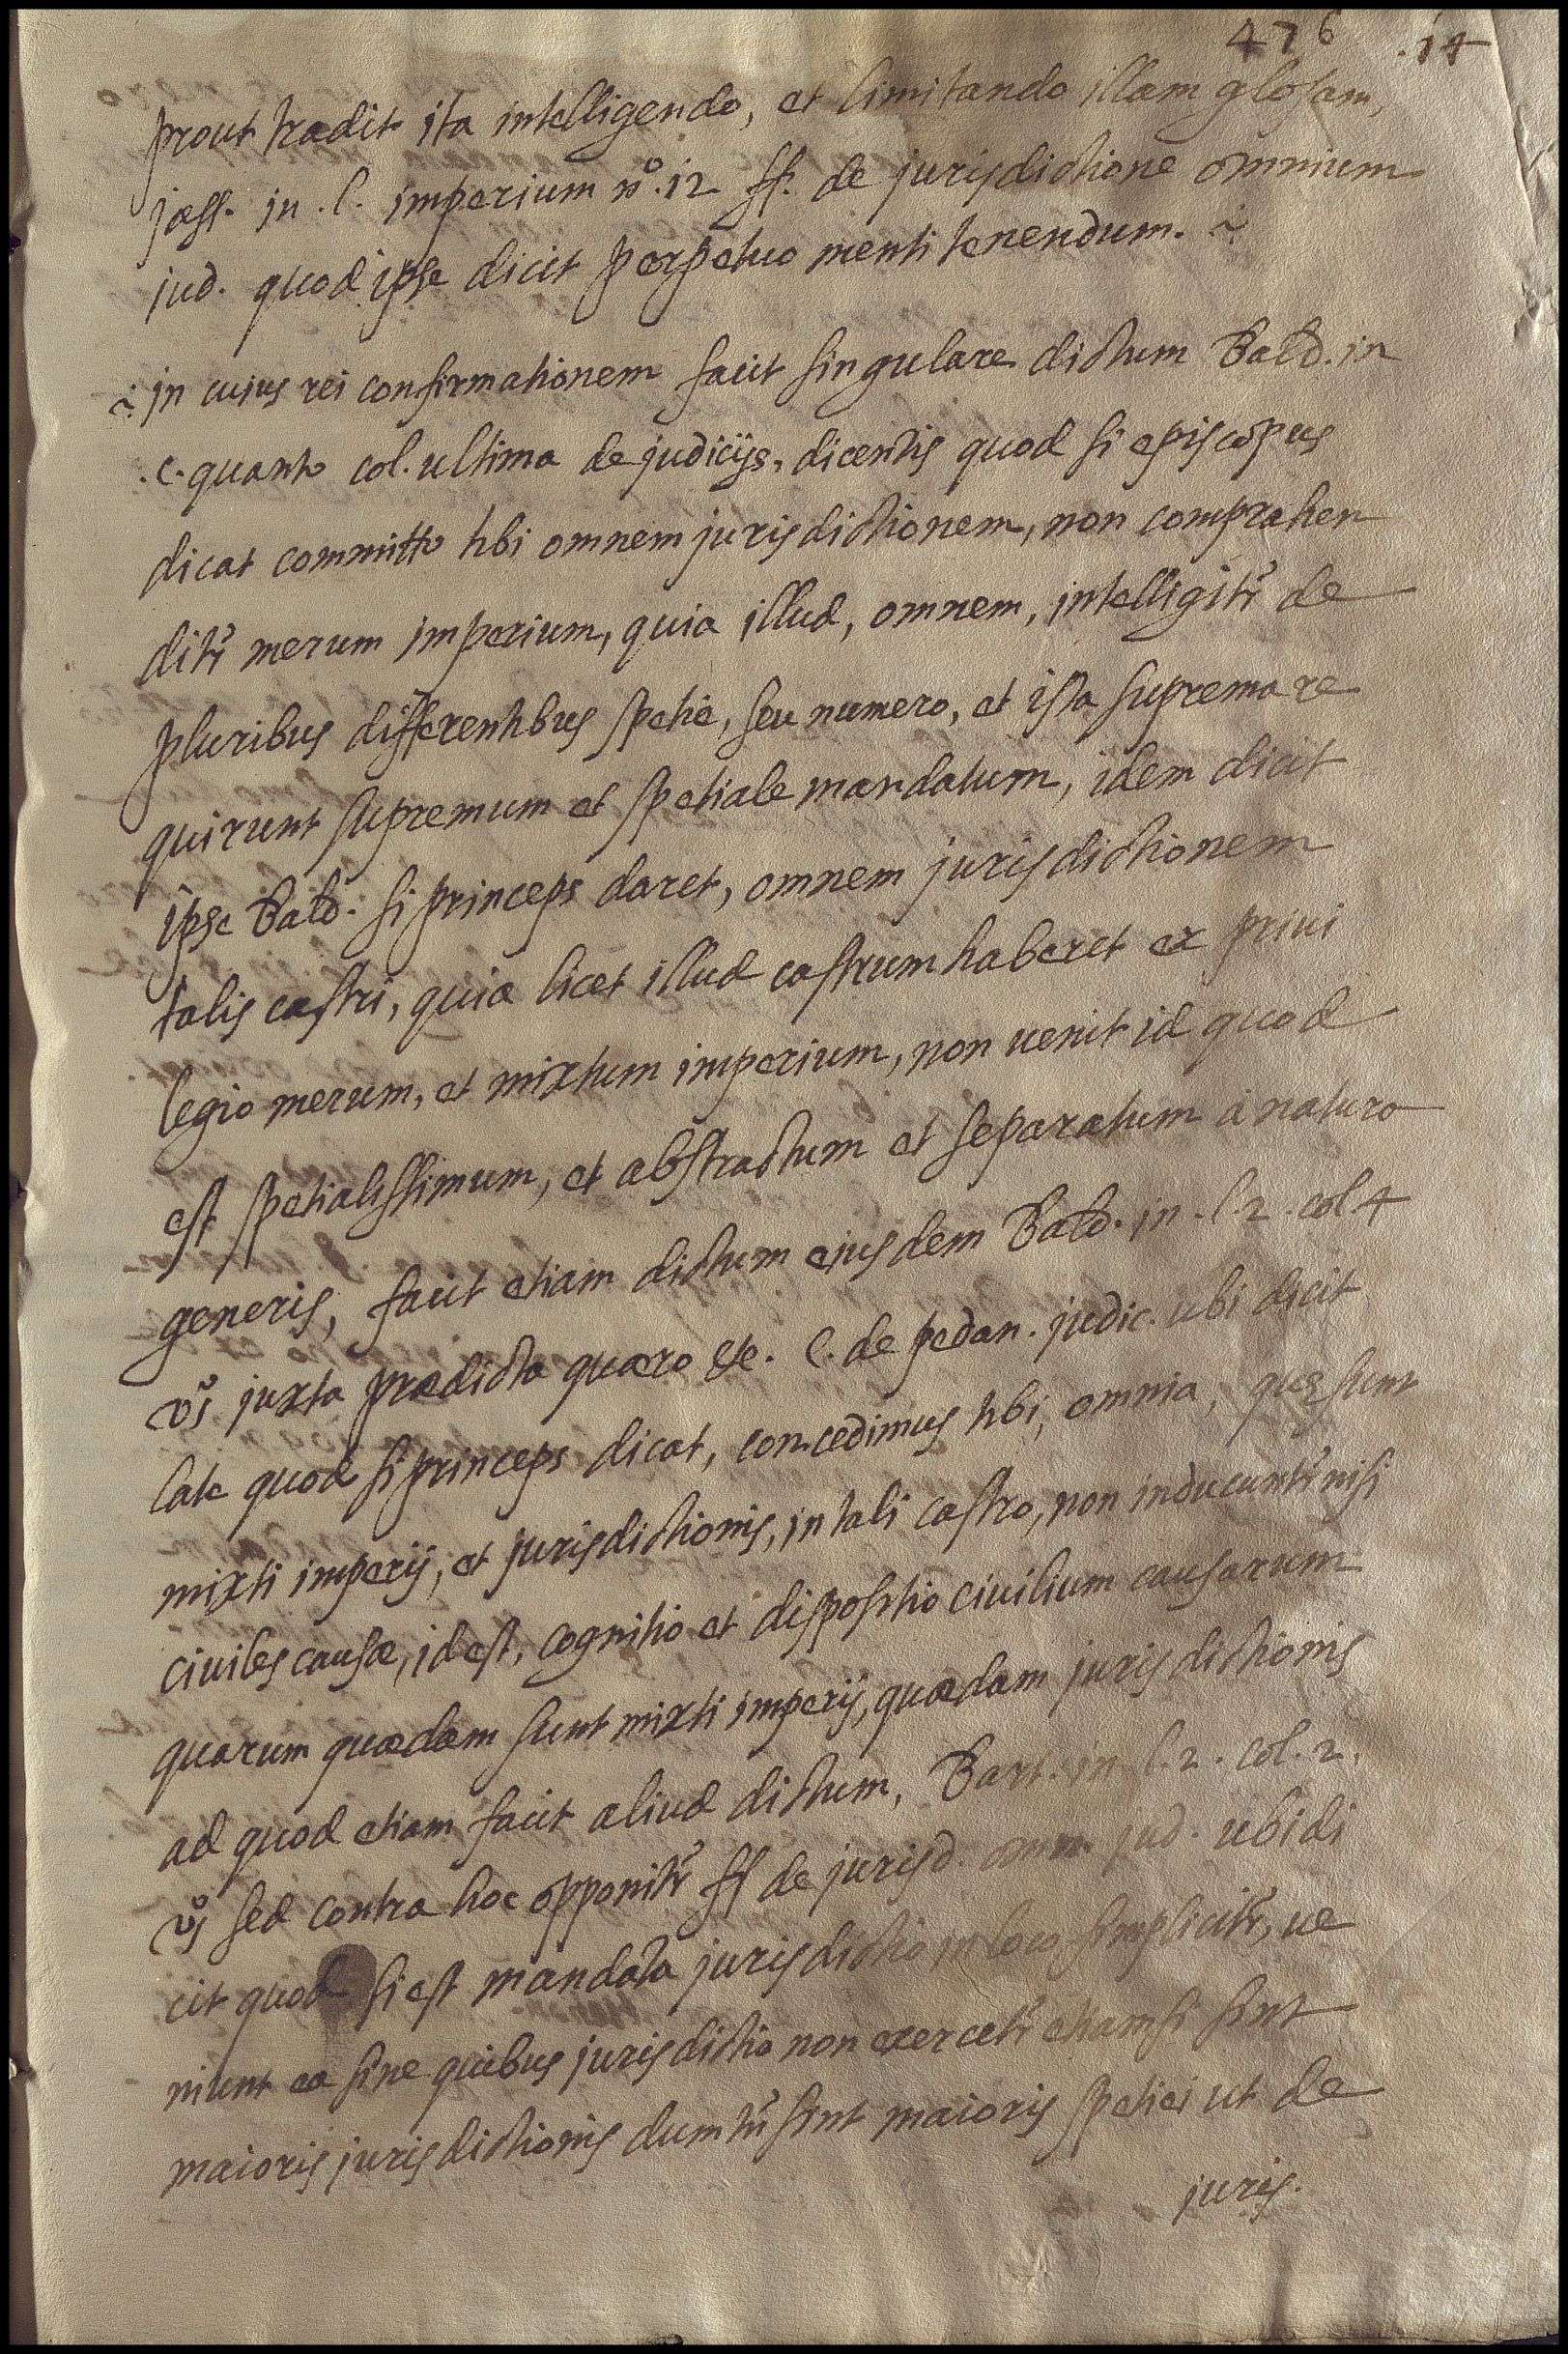 476 .14
prout tradit ita intelligendo, et limitando illam glosam,
jass. in .l. imperium nº.12 ff. de jurisdictione omnium
jud. quod ipse dicit perpetuo menti tenendum. ~
~ in cuius rei confirmationem facit singulare dictum Bald. in
.c. quanto col. ultima de judicijs, dicentis quod si episcopus
dicat committo tibi omnem jurisdictionem, non comprehen
ditr merum imperium, quia illud, omnem, intelligitr de
pluribus differentibus spetie, seu numero, et ista suprema re
quirunt supremum et spetiale mandatum, idem dicit
ipse Bald. si princeps daret, omnem jurisdictionem
talis castri, quia licet illud castrum haberet ex priui
legio merum, et mixtum imperium, non uenit id quod
est spetialissimum, et abstractum et separatum à natura
generis, facit etiam dictum eiusdem Bald. in .l.2. col.4
vº juxta prædicta quæro ete. C. de pedan. judic. ubi dicit
late quod si princeps dicat, concedimus tibi, omnia, quę sunt
mixti imperij, et jurisdictionis, in tali castro, non inducuntr nisi
ciuiles causæ, id est, cognitio et dispositio ciuilium causarum
quarum quædam sunt mixti imperij, quædam jurisdictionis
ad quod etiam facit aliud dictum, Bart. in l.2. col.2.
vº sed contra hoc opponitr ff de jurisd. omn. jud. ubi di
cit quod si est mandata jurisdictio in loco simplicitr, ue
niunt ea sine quibus jurisdictio non exercetr etiam si sint
maioris jurisdictionis dum tñ sint maioris spetiei ut de
juris.